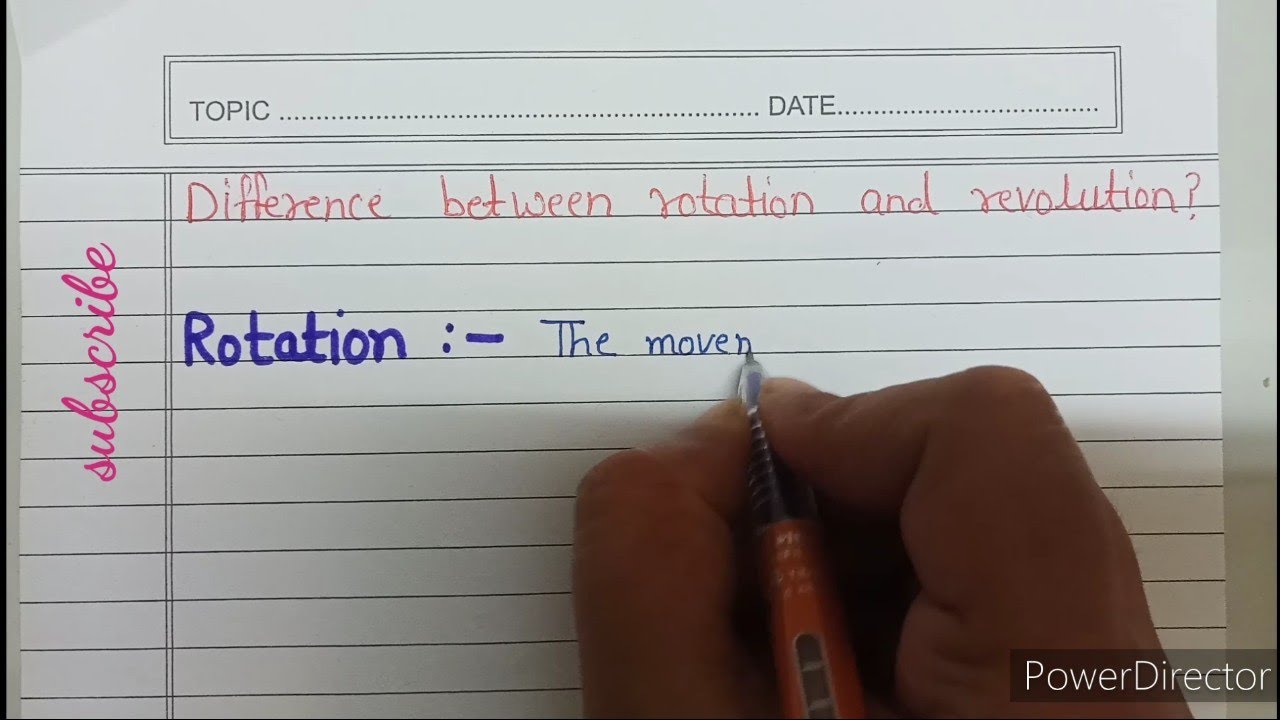 TOPIC ................................................................. DATE...................................
Difference between rotation and revolution?
Rotation :- The movem
subscribe
PowerDirector